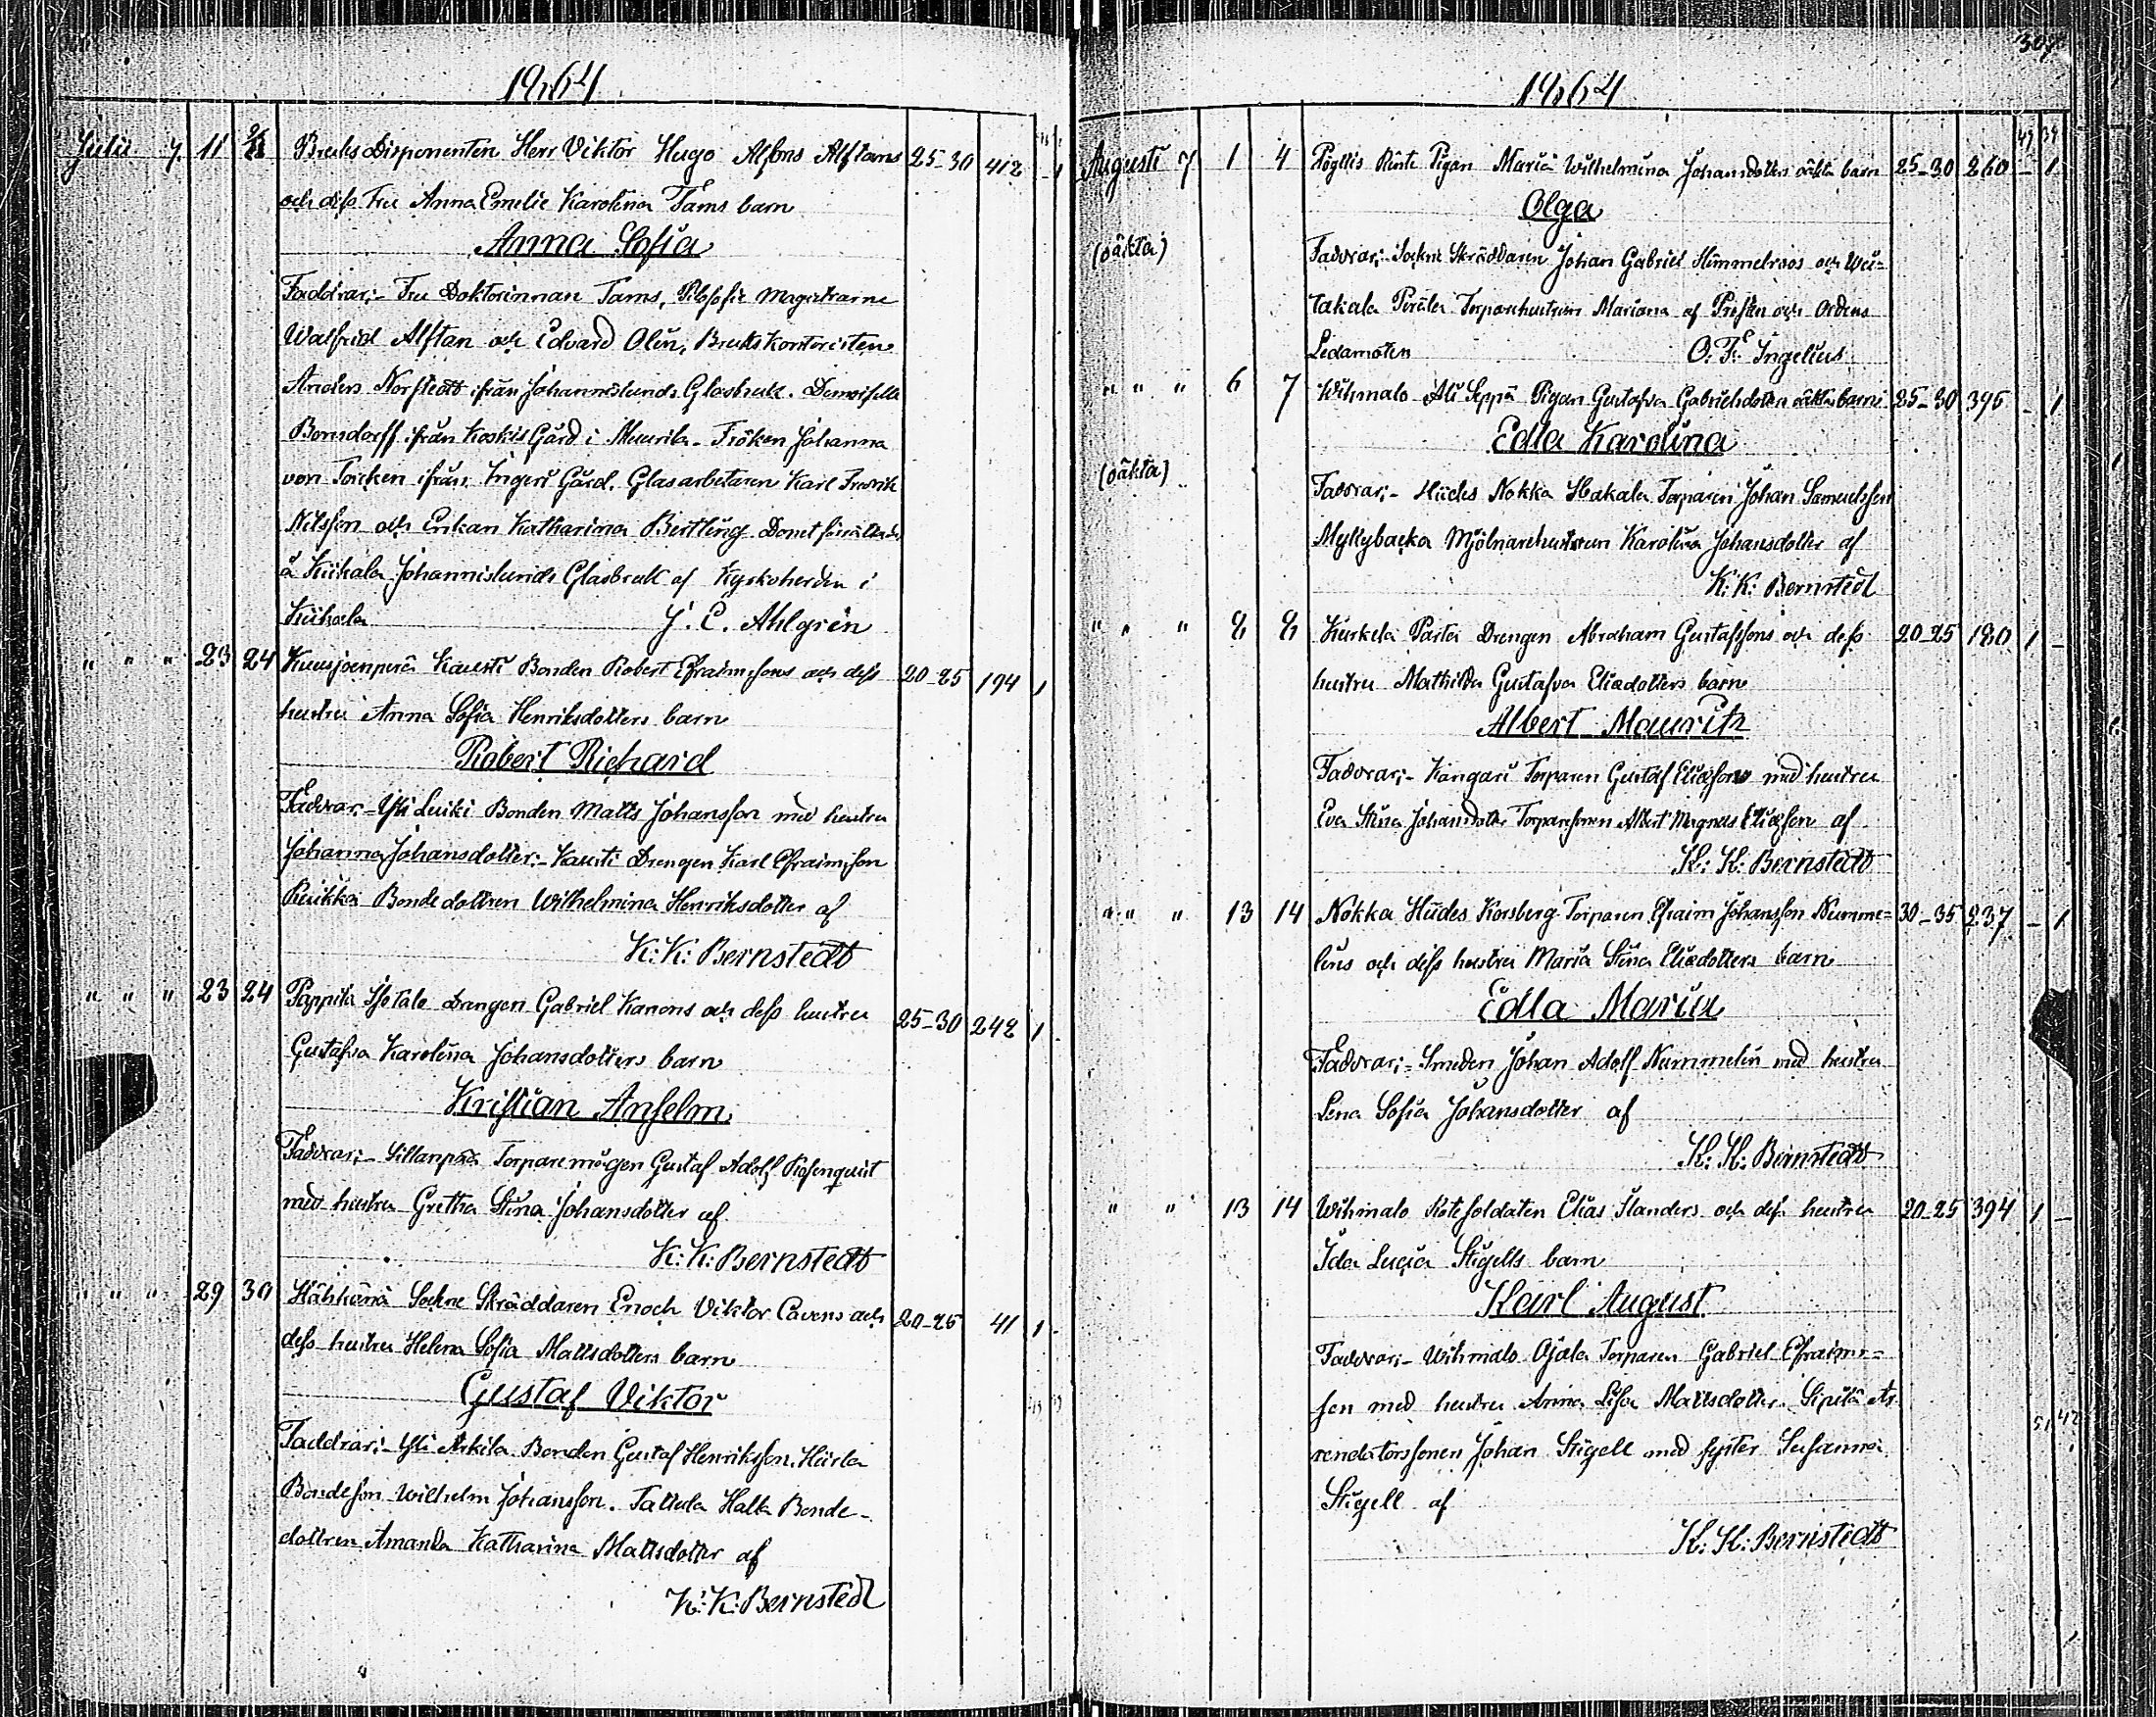 1864
Julii 7. 11 Bruks Disponenten Herr Viktor Hugo Alfons Alftans 25-30 412 - 1
och dess Fru Anna Emelie Karolina Tams barn
Anna Sofia
Faddrar;- Fru Doktorinnan Tams, Filosofie Magistrarne
Walfrid Alftan och Edvard Olin, Brukskontoristen
Anders Norstedt ifrån Johannislunds Glasbruk. Demoiselle
Bonsdorff ifrån Koskis Gård i Muurila - Fröken Johanna
von Torcken ifrån Ingeri Gård, Glasarbetaren Karl Fredrik
Nilsson och Enkan Katharina Bertling. Dopet förrättad
å Kiikala Johannislunds Glasbruk af Kyrkoherden i
Kiikala J. C. Ahlgrén
" " " 23 24 Kuusjoenperä Kausti Bonden Robert Efraimssons och dess 20-25 194 1
hustru Anna Sofia Henriksdotters barn
Robert Richard
Faddrar;- Yli Luiki Bonden Matts Johansson med hustru
Johanna Johansdotter;- Kausti Drengen Karl Efraimsson
Ruikka Bondedottren Wilhelmina Henriksdotter af
K: K: Bernstedt
" " " 23 24 Pappila Isotalo Drengen Gabriel Kanons och dess hustru 25-30 242 1 -
Gustafva Karolina Johansdotters barn
Kristian Anselm
Faddrar;- Sillanpää Torparemågen Gustaf Adolf Rosenquist
med hustru Gretha Stina Johansdotter af
K: K: Bernstedt
" " " 29 30 Hähkänä Sockne Skräddaren Enoch Viktor Cavens och 20-25 41 1 -
dess hustru Helena Sofia Mattsdotters barn
Gustaf Viktor
Faddrar;- Yli Arkila Bonden Gustaf Henriksson, Hiirla
Bondeson Wilhelm Johansson. Tattula Halla Bonde-
dottren Amanda Katharina Mattsdotter af
K: K: Bernstedt
307
1864
49 39
Augusti 7 1 4 Pöyllis Rinte Pigan Maria Wilhelmina Johansdotters oäkta barn 25-30 260 - 1
Olga
(oäkta)
Faddrar;- Sockne Skräddaren Johan Gabriel Himmelroos och Wii-
takala Perälä Torparehustrun Mariana af Prosten och Ordens
Ledamoten O. F. Ingelius
" " " 6 7 Wihmalo Ali Seppä Pigan Gustafva Gabrielsdotters oäkta barn 25-30 395 - 1
Edla Karolina
(oäkta)
Faddrar;- Hiides Nokka Hakala Torparen Johan Samuelsson
Myllybacka Mjölnarehustrun Karolina Johansdotter af
K: K: Bernstedt
" " " 8 8 Kurkela Parta Drengen Abraham Gustafssons och dess 20-25 180 1 -
hustru Mathilda Gustafva Eliædotters barn
Albert Mauritz
Faddrar;- Kangari Torparen Gustaf Eliæson med hustru
Eva Stina Johansdotter Torparesonen Albert Magnus Eliæson af
K: K: Bernstedt
" " " 13 14 Nokka Hiides Korsberg Torparen Efraim Johansson Numme- 30-35 237 - 1
lins och dess hustru Maria Stina Eliædotters barn
Edla Maria
Faddrar;- Smeden Johan Adolf Nummelin med hustru
Lena Sofia Johansdotter af
K: K: Bernstedt
" " 13 14 Wihmalo Rotesoldaten Elias Slanders och dess hustru 20-25 394 1 -
Ida Lucia Stigells barn
Karl August
Faddrar;- Wihmalo Ojala Torparen Gabriel Efraims-
son med hustru Anna Lisa Mattsdotter. Sipilä Ar-
rendatorssonen Johan Stigell med syster Susanna
Stigell af
K: K: Bernstedt
51 42